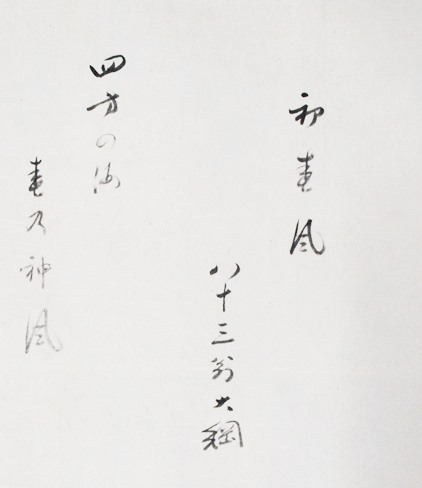 初春風
八十三翁大綱
四方の海
春乃神風